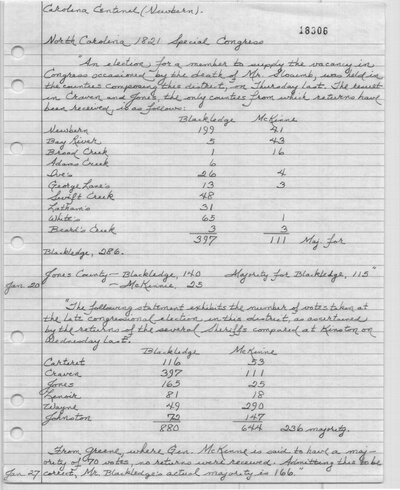 Carolina Centinel (Newbern).
18306
North Carolina 1821 Special Congress
"An election for a member to supply the vacancy in
Congress occasioned by the death of Mr. Slocumb, was held in
the counties composing this district, on Thursday last. The result
in Craven and Jones, the only counties from which returns have
been received, is as follows:
Blackledge McKinne
Newbern 199 41
Bay River 5 43
Broad Creek 1 16
Adams Creek 6
Ive's 26 4
George Lane's 13 3
Swift Creek 48
Latham's 31
White's 65 1
Beard's Creek 3 3
397 111 Maj. for
Blackledge, 286.
Jones County - Blackledge, 140 Majority for Blackledge, 115"
Jan. 20 - McKinnie, 25
"The following statement exhibits the number of votes taken at
the late congressional election, in this district, as ascertained
by the returns of the several Sheriffs compared at Kinston on
Wednesday last.
Blackledge McKinne
Carteret 116 53
Craven 397 111
Jones 165 25
Lenoir 81 18
Wayne 49 290
Johnston 72 147
880 644 236 majority.
From Greene, where Gen. McKinne is said to have a maj-
ority of 70 votes, no returns were received. Admitting this to be
Jan 27 correct, Mr. Blackledge's actual majority is 166."